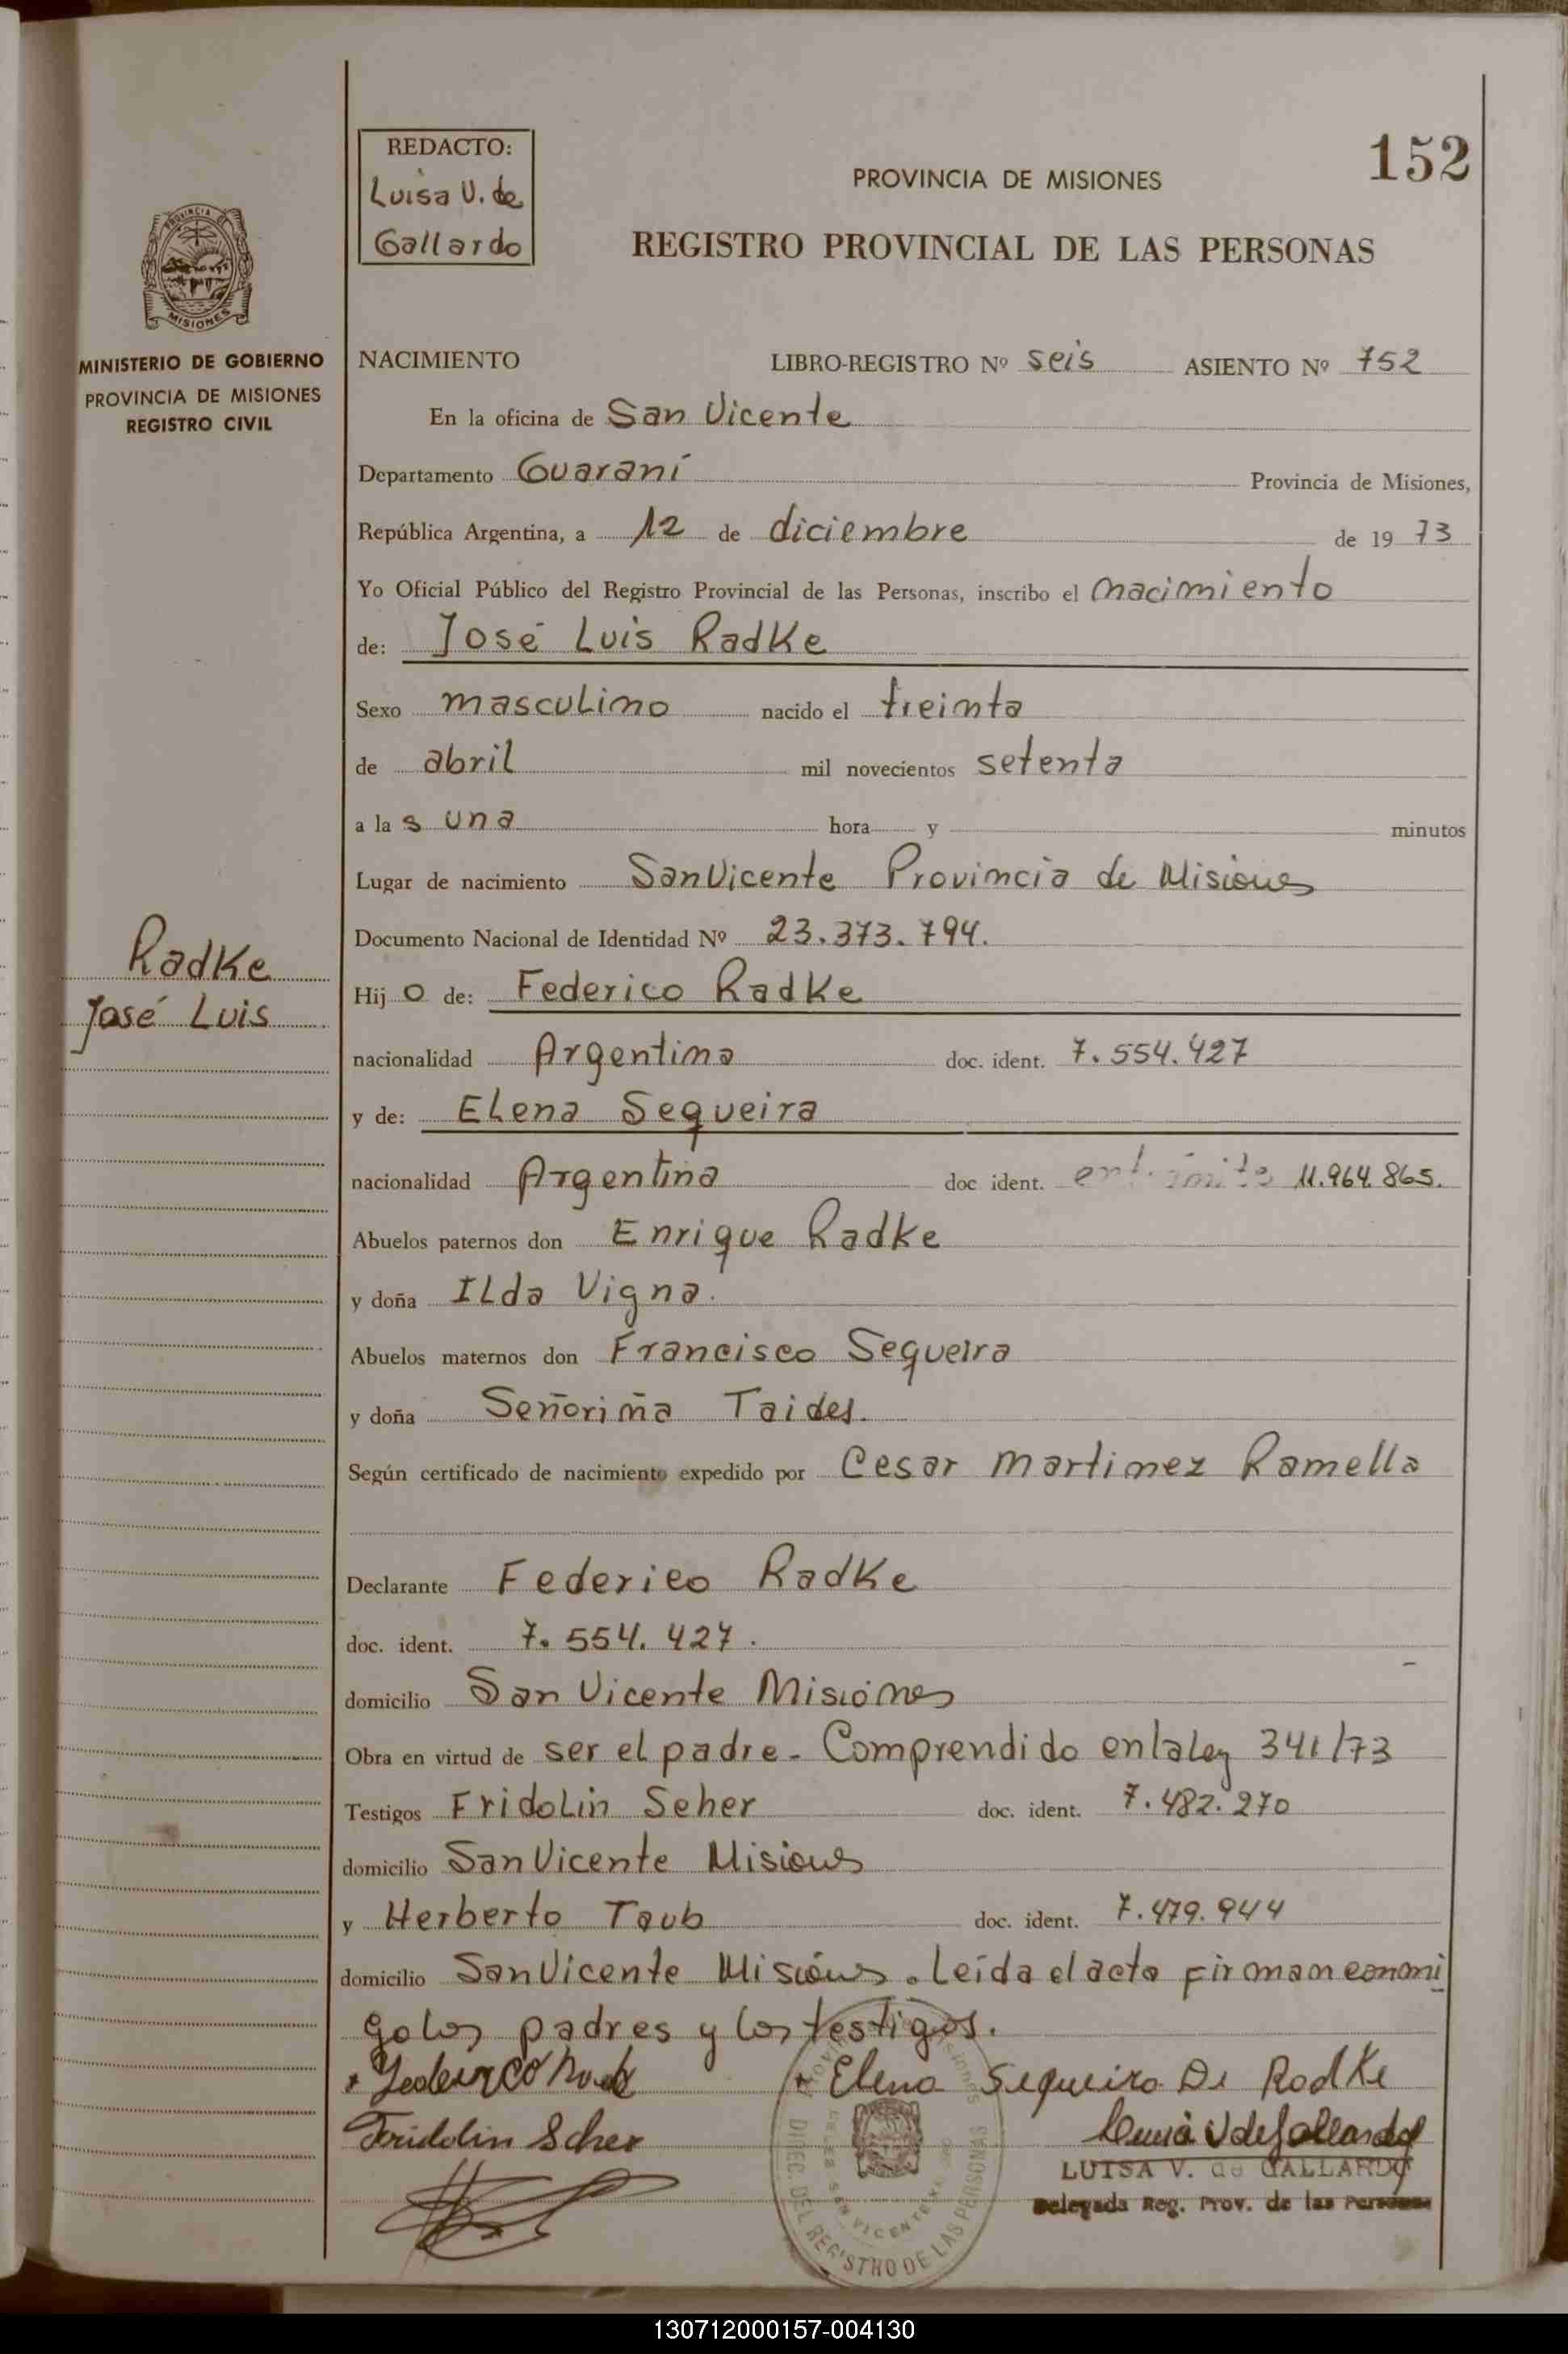 152
REDACTO:
Luisa V. de
Gallardo
PROVINCIA DE MISIONES
REGISTRO PROVINCIAL DE LAS PERSONAS
MISIONES
MINISTERIO DE GOBIERNO
PROVINCIA DE MISIONES
REGISTRO CIVIL
NACIMIENTO LIBRO-REGISTRO Nº seis ASIENTO Nº 752
En la oficina de San Vicente
Departamento Guaraní Provincia de Misiones,
República Argentina, a 12 de diciembre de 19 73
Yo Oficial Público del Registro Provincial de las Personas, inscribo el nacimiento
de: José Luis Radke
Sexo masculino nacido el treinta
de abril mil novecientos setenta
a la s una hora y minutos
Lugar de nacimiento San Vicente Provincia de Misiones
Documento Nacional de Identidad Nº 23.373.794.
Radke
José Luis
Hij o de: Federico Radke
nacionalidad Argentina doc. ident. 7.554.427
y de: Elena Sequeira
nacionalidad Argentina doc ident. 11.964.865.
Abuelos paternos don Enrique Radke
y doña Ilda Vigna.
Abuelos maternos don Francisco Sequeira
y doña Señoriña Taides.
Según certificado de nacimiento expedido por Cesar Martinez Ramella
Declarante Federico Radke
doc. ident. 7.554.427.
domicilio San Vicente Misiones
Obra en virtud de ser el padre - Comprendido en la Ley 341/73
Testigos Fridolin Scher doc. ident. 7.482.270
domicilio San Vicente Misiones
y Herberto Taub doc. ident. 7.479.944
domicilio San Vicente Misiones. Leída el acta firman conmi
go los padres y los testigos.
Elena Sequeira De Radke
Fridolin Scher
LUISA V. de GALLARDO
Delegada Reg. Prov. de las Personas
DIREC. DEL REGISTRO DE LAS PERSONAS
SAN VICENTE
130712000157-004130